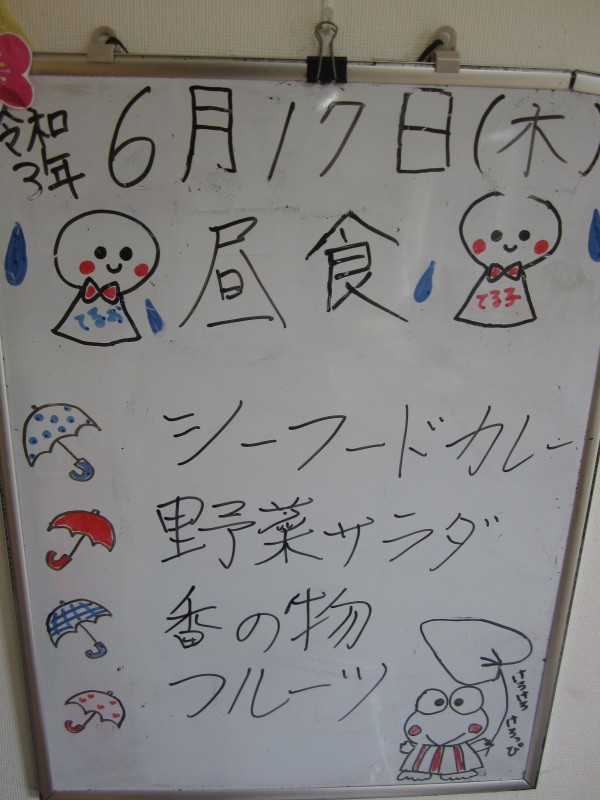 令和
3年
6月17日(木)
昼食
てるお
てる子
シーフードカレー
野菜サラダ
香の物
フルーツ